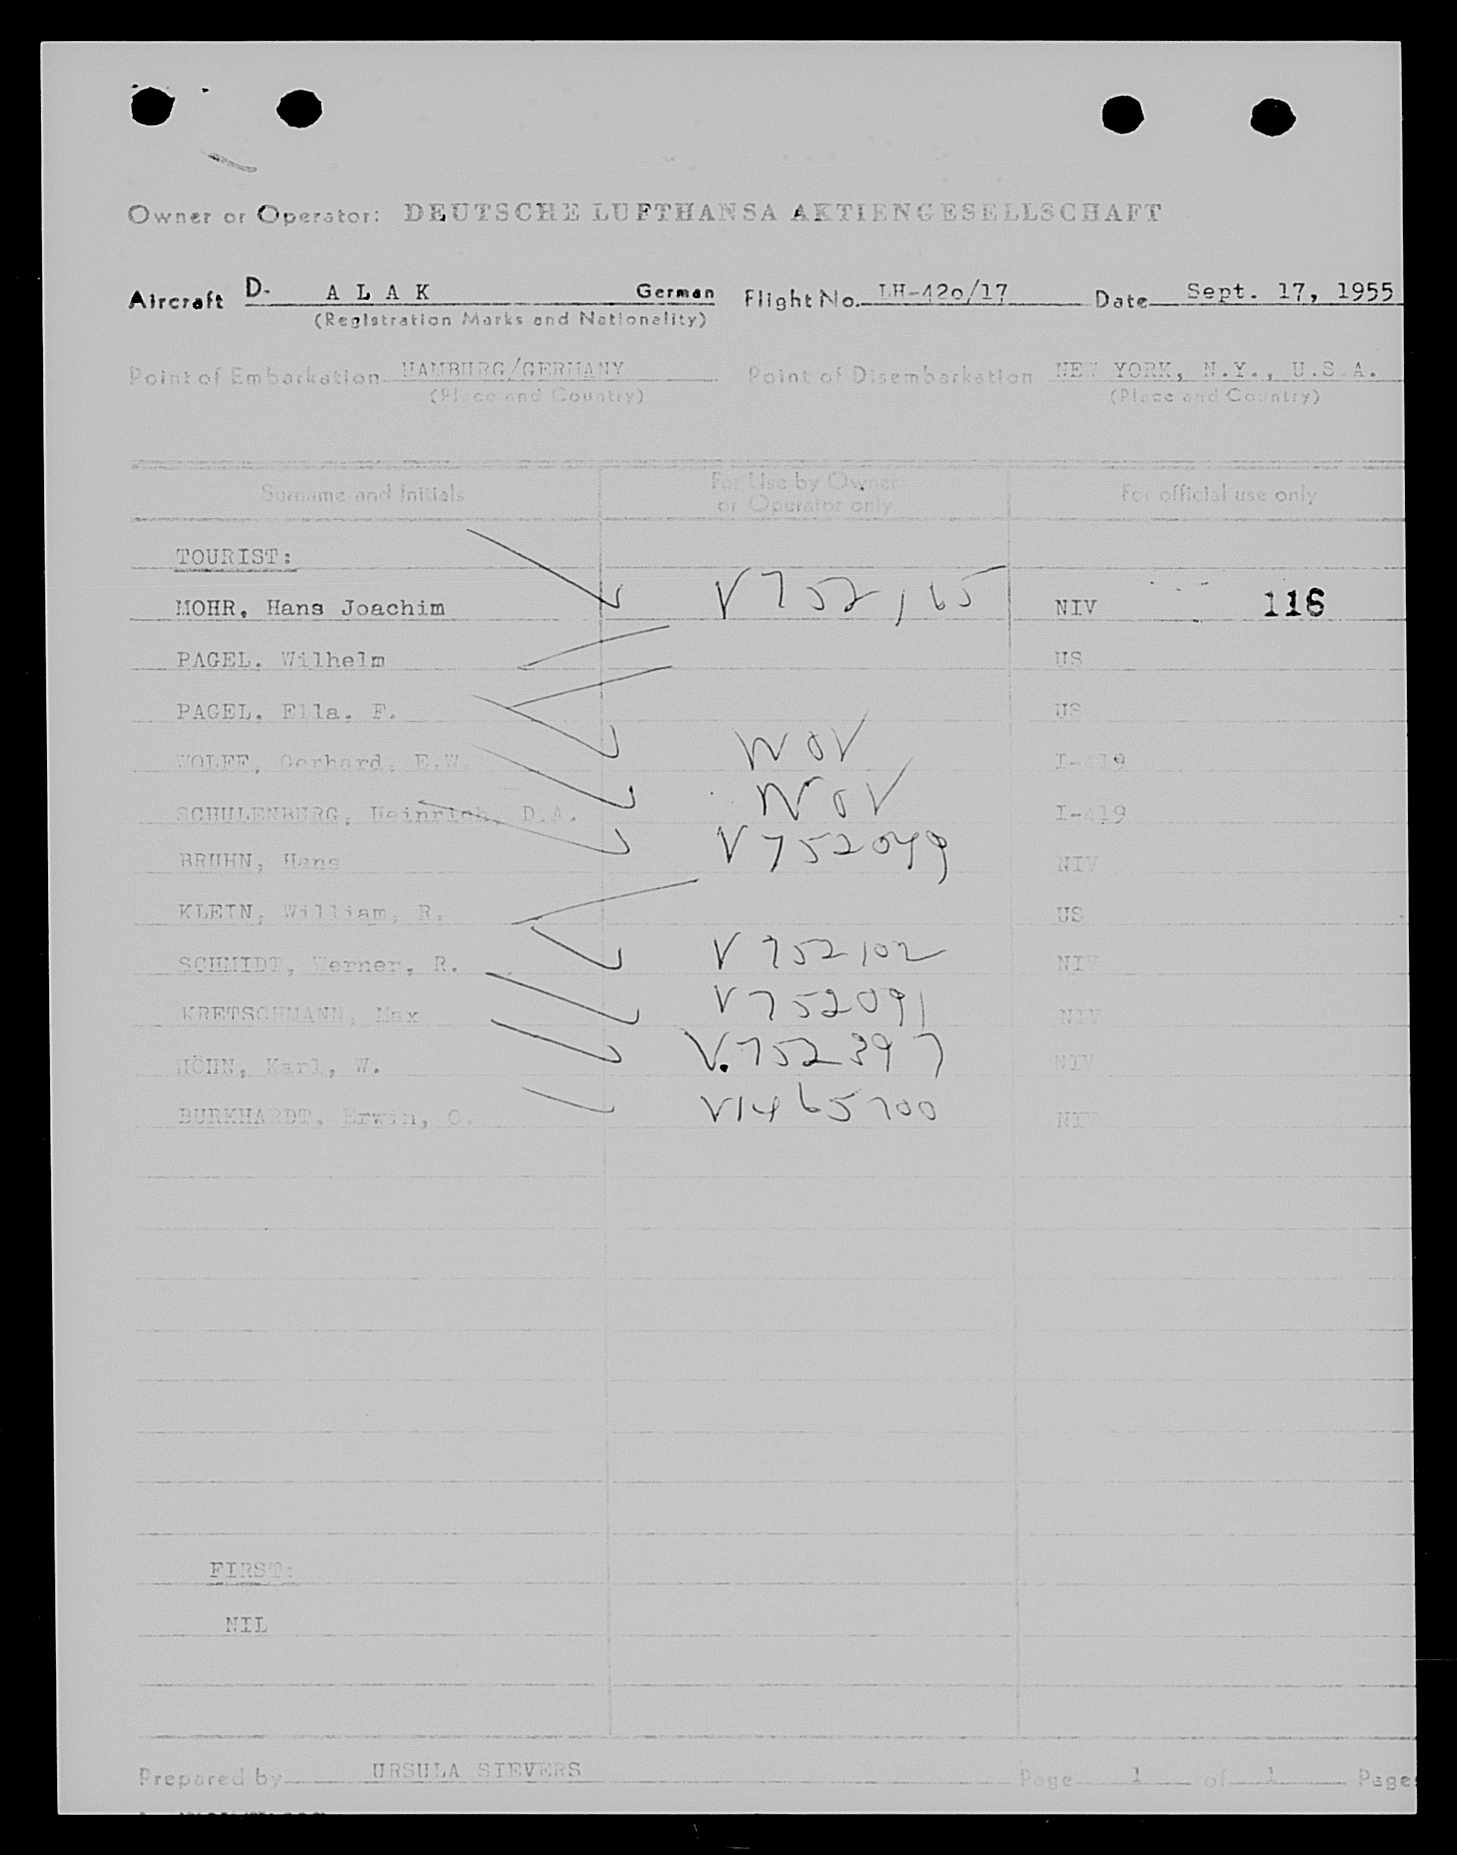 Owner or Operator: DEUTSCHE LUFTHANSA AKTIENGESELLSCHAFT
Aircraft D- A L A K German Flight No. LH-42o/17 Date Sept. 17, 1955
(Registration Marks and Nationality)
Point of Embarkation HAMBURG/GERMANY Point of Disembarkation NEW YORK, N.Y., U.S.A.
(Place and Country) (Place and Country)
Surname and Initials For Use by Owner or Operator only For official use only
TOURIST:
MOHR, Hans Joachim V752165 NIV 116
PAGEL, Wilhelm US
PAGEL, Ella, F. US
WOLFF, Gerhard, E.W. WOV I-419
SCHULENBURG, Heinrich, D.A. WOV I-419
BRUHN, Hans V752049 NIV
KLEIN, William, R. US
SCHMIDT, Werner, R. V752102 NIV
KRETSCHMANN, Max V752091 NIV
HÖHN, Karl, W. V.752397 NIV
BURKHARDT, Erwin, O. V1465700 NIV
FIRST:
NIL
Prepared by URSULA SIEVERS Page 1 of 1 Pages